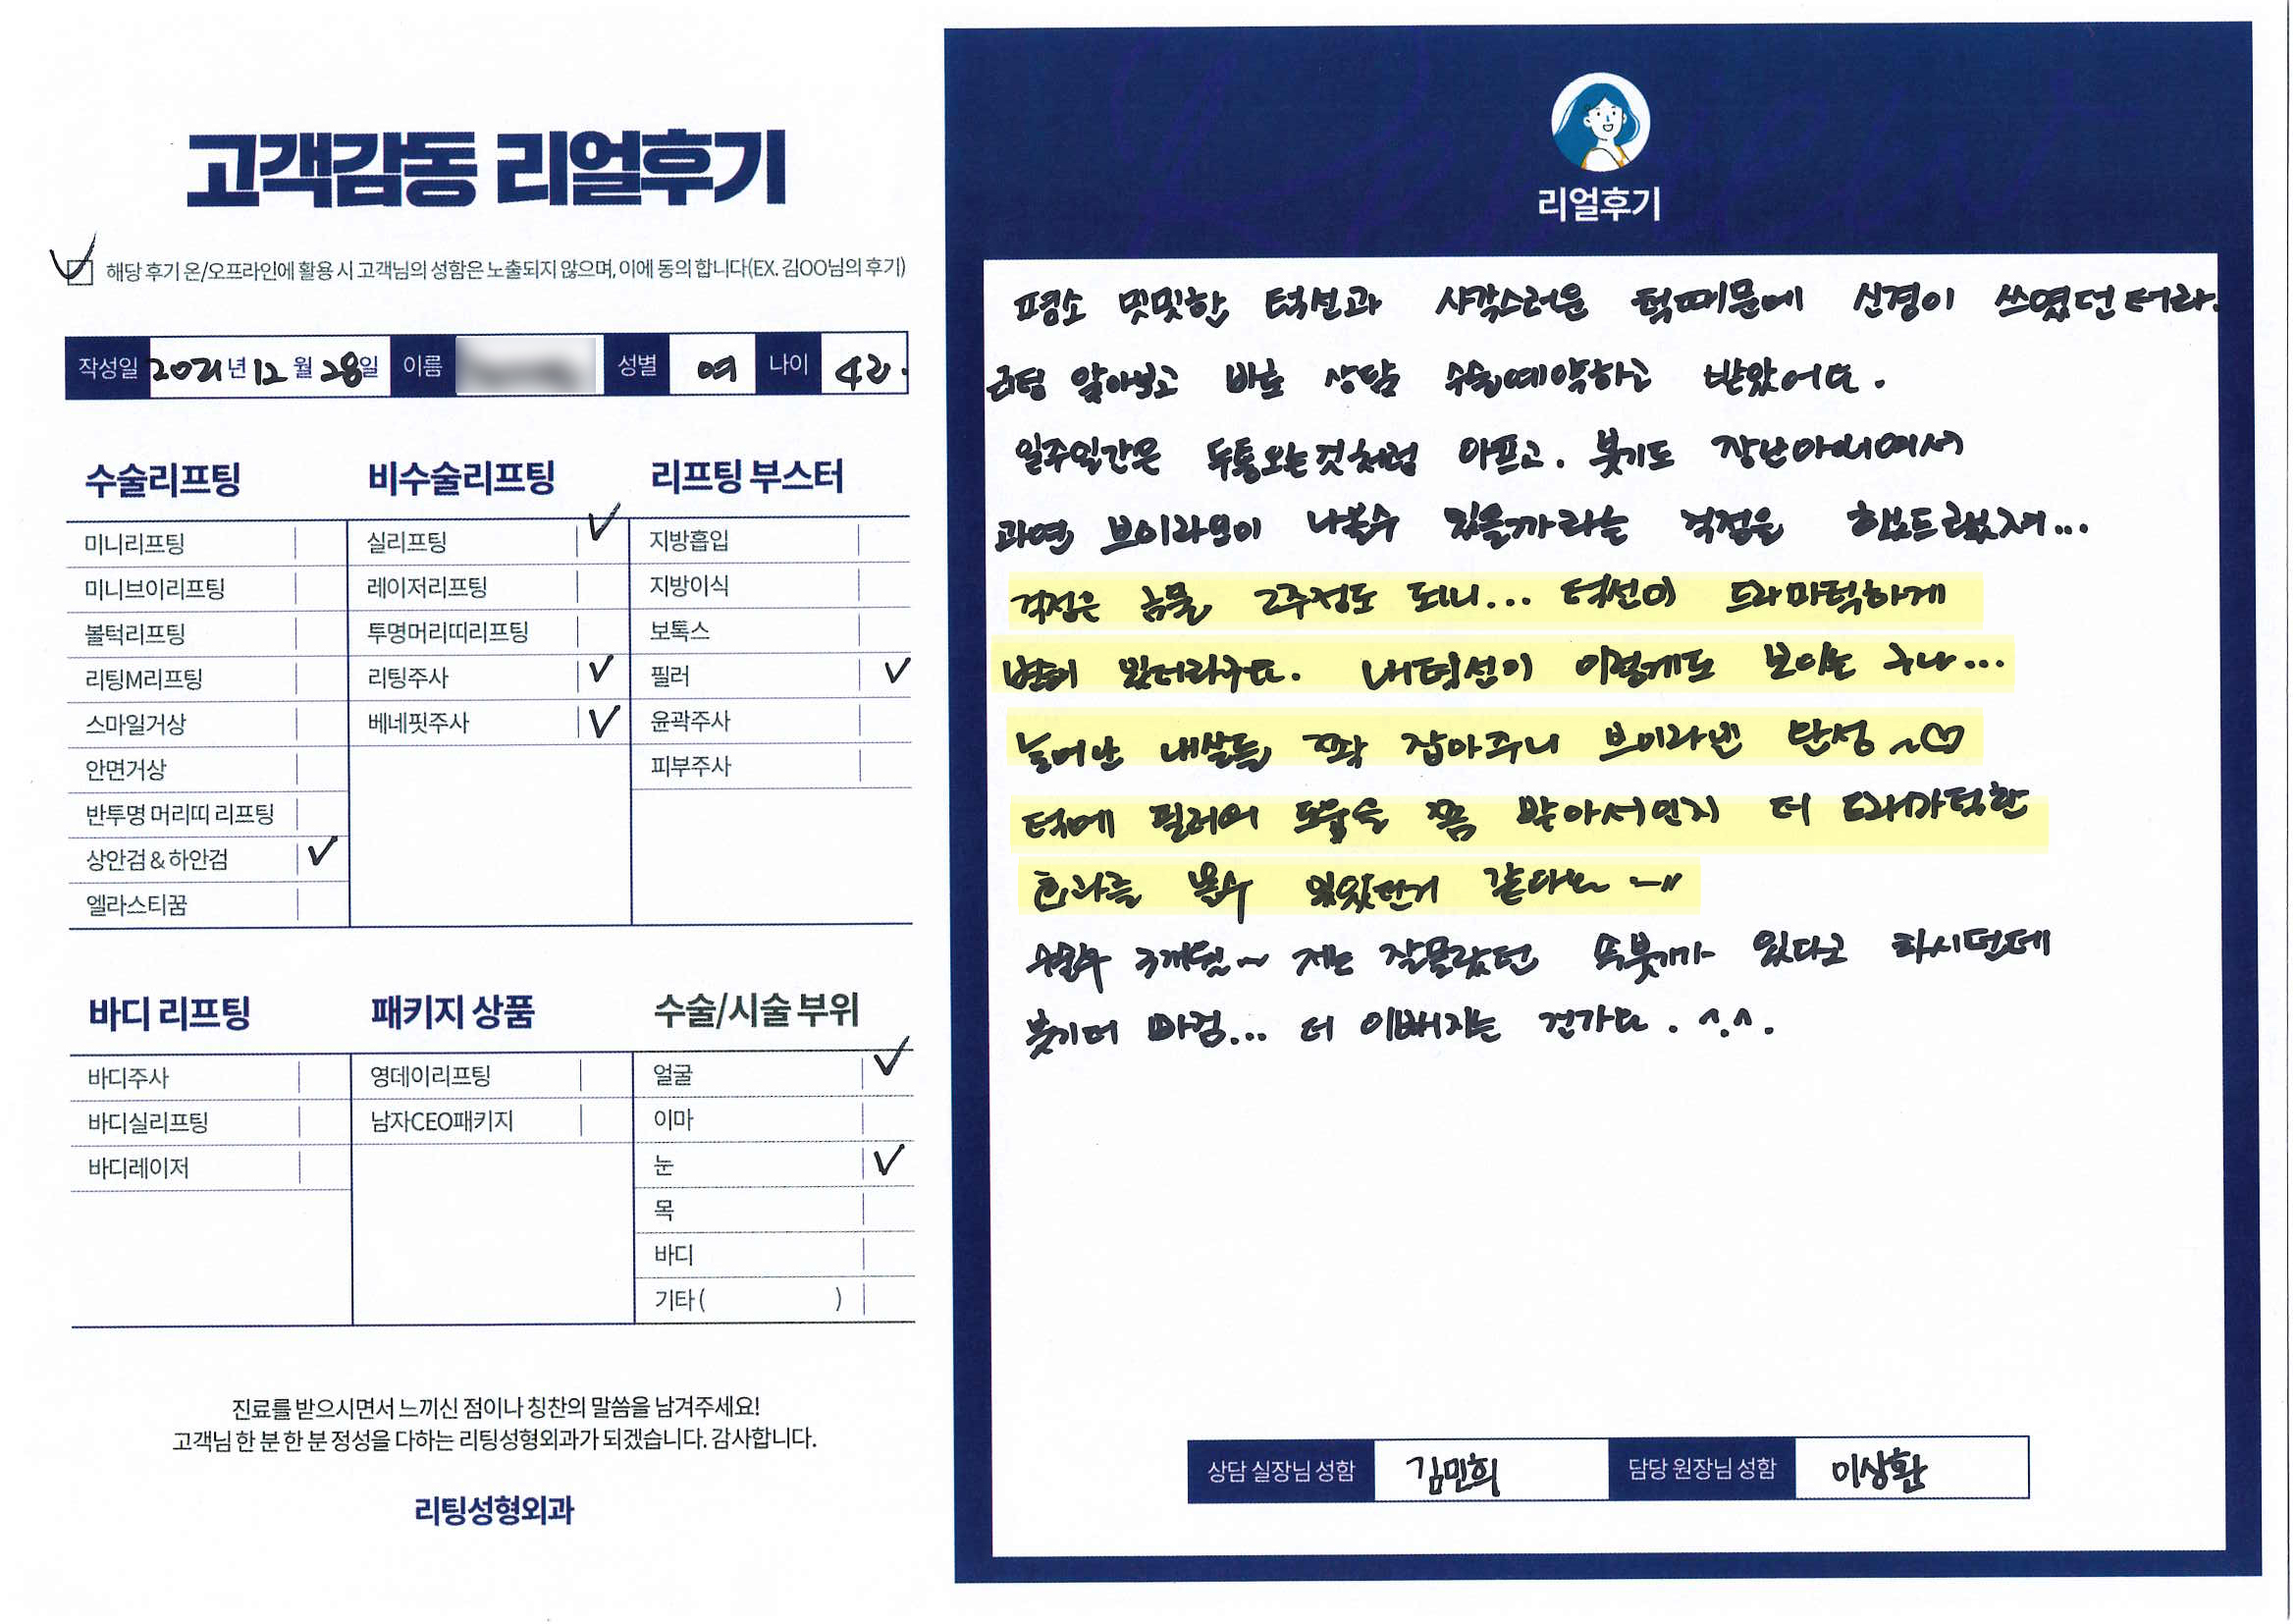 고객감동 리얼후기
해당 후기 온/오프라인에 활용 시 고객님의 성함은 노출되지 않으며, 이에 동의 합니다(EX. 김OO님의 후기)
작성일 2021년 12월 28일 이름 성별 여 나이 42.
수술리프팅
미니리프팅
미니브이리프팅
볼턱리프팅
리팅M리프팅
스마일거상
안면거상
반투명 머리띠 리프팅
상안검 & 하안검
엘라스티꿈
비수술리프팅
실리프팅
레이저리프팅
투명머리띠리프팅
리팅주사
베네핏주사
리프팅 부스터
지방흡입
지방이식
보톡스
필러
윤곽주사
피부주사
바디 리프팅
바디주사
바디실리프팅
바디레이저
패키지 상품
영데이리프팅
남자CEO패키지
수술/시술 부위
얼굴
이마
눈
목
바디
기타 ( )
진료를 받으시면서 느끼신 점이나 칭찬의 말씀을 남겨주세요!
고객님 한 분 한 분 정성을 다하는 리팅성형외과가 되겠습니다. 감사합니다.
리팅성형외과
리얼후기
평소 밋밋한 턱선과 사각스러운 턱때문에 신경이 쓰였던터라.
리팅 알아보고 바로 상담 수술예약하고 받았어요.
일주일간은 두통오는것처럼 아프고. 붓기도 장난아니여서
과연 브이라인이 나올수 있을까라는 걱정을 했드랬지...
걱정은 금물 2주정도 되니... 턱선이 드라마틱하게
변해 있더라구요. 내턱선이 이렇게도 보이는 구나...
늘어난 내살들 꽉 잡아주니 브이라인 탄성~♡
턱에 필러의 도움을 쫌 받아서인지 더 드라마틱한
효과를 볼수 있었던거 같아요~"
수술후 3개월~ 저는 잘몰랐던 속붓기가 있다고 하시던데
붓기더 빠짐... 더 이뻐지는 건가요. ^.^.
상담 실장님 성함 김민희 담당 원장님 성함 이상환